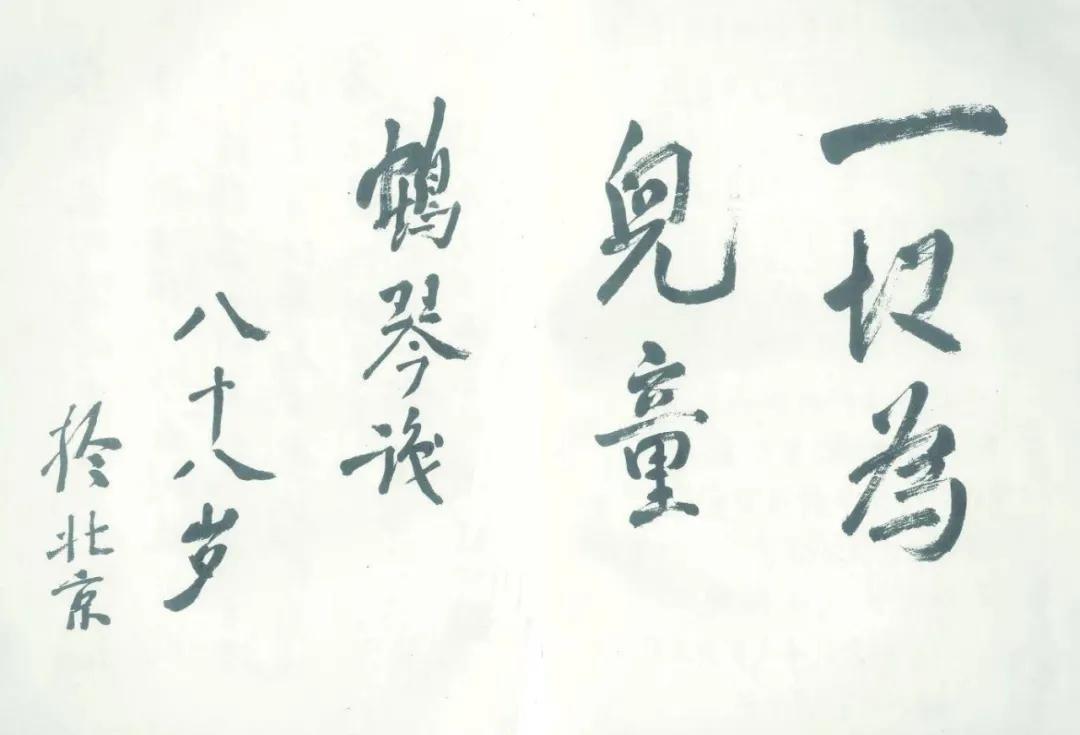 一切為
兒童
鶴琴識
八十八岁
於北京